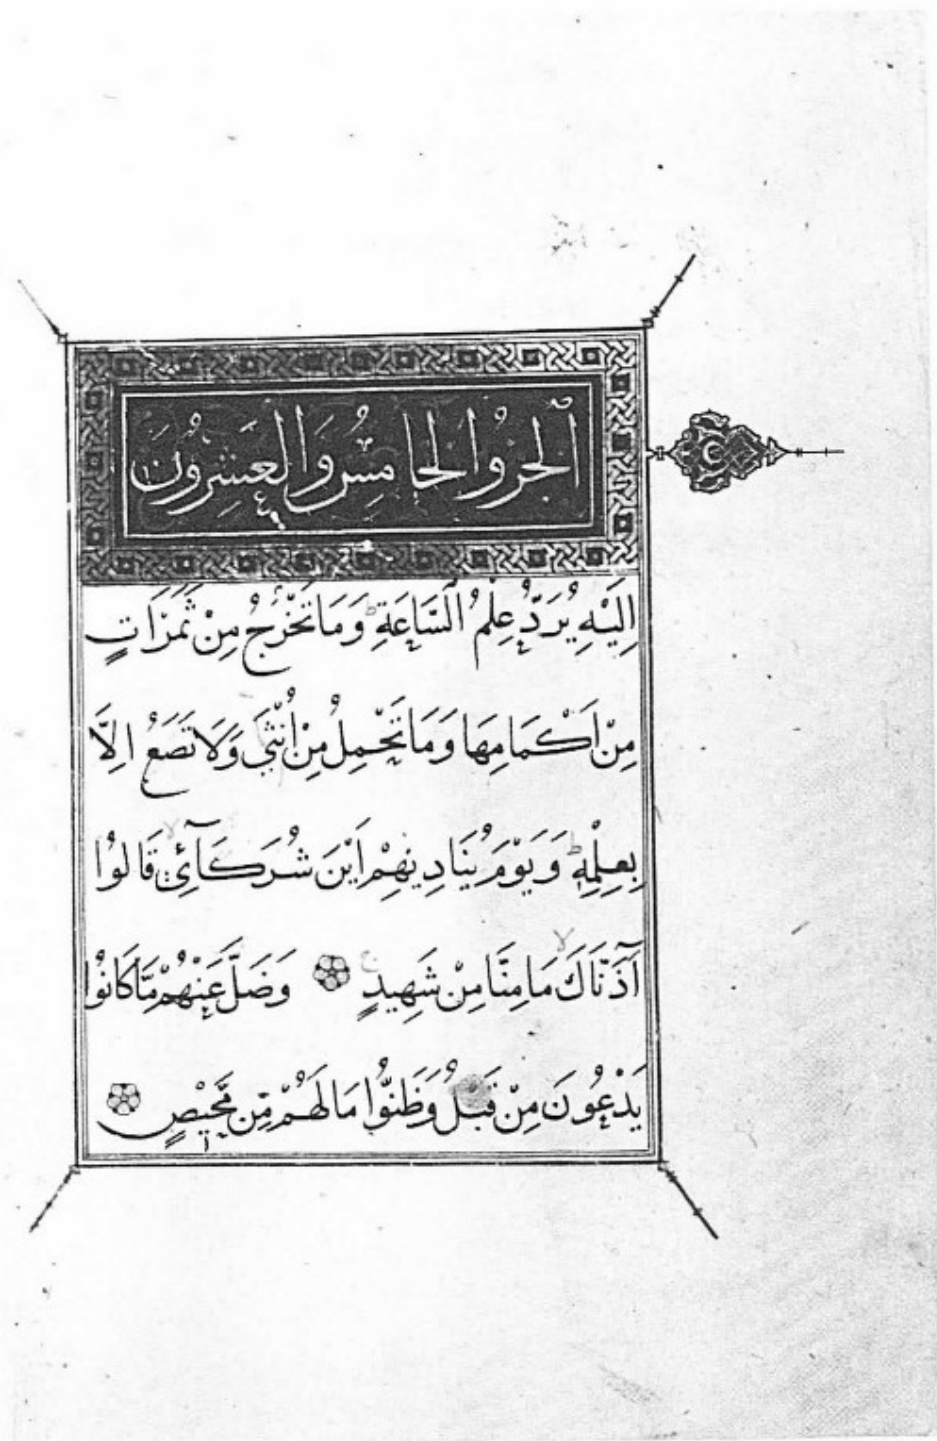 اَلْجُزْوُ الْخَامِسُ وَالْعَشِرُونَ
اِلَيْهِ يُرَدُّ عِلْمُ ٱلسَّاعَةِ ط وَمَا تَخْرُجُ مِنْ ثَمَرَاتٍ
مِنْ اَكْمَامِهَا وَمَا تَحْمِلُ مِنْ اُنْثٰى وَلَا تَضَعُ اِلَّا
بِعِلْمِهِ ط وَيَوْمَ يُنَادِيهِمْ اَيْنَ شُرَكَآئِى قَالُوا
آذَنَّاكَ مَا مِنَّا مِنْ شَهِيدٍ وَضَلَّ عَنْهُمْ مَّا كَانُوا
يَدْعُونَ مِنْ قَبْلُ وَظَنُّوا مَا لَهُمْ مِّنْ مَّحِيْصٍ